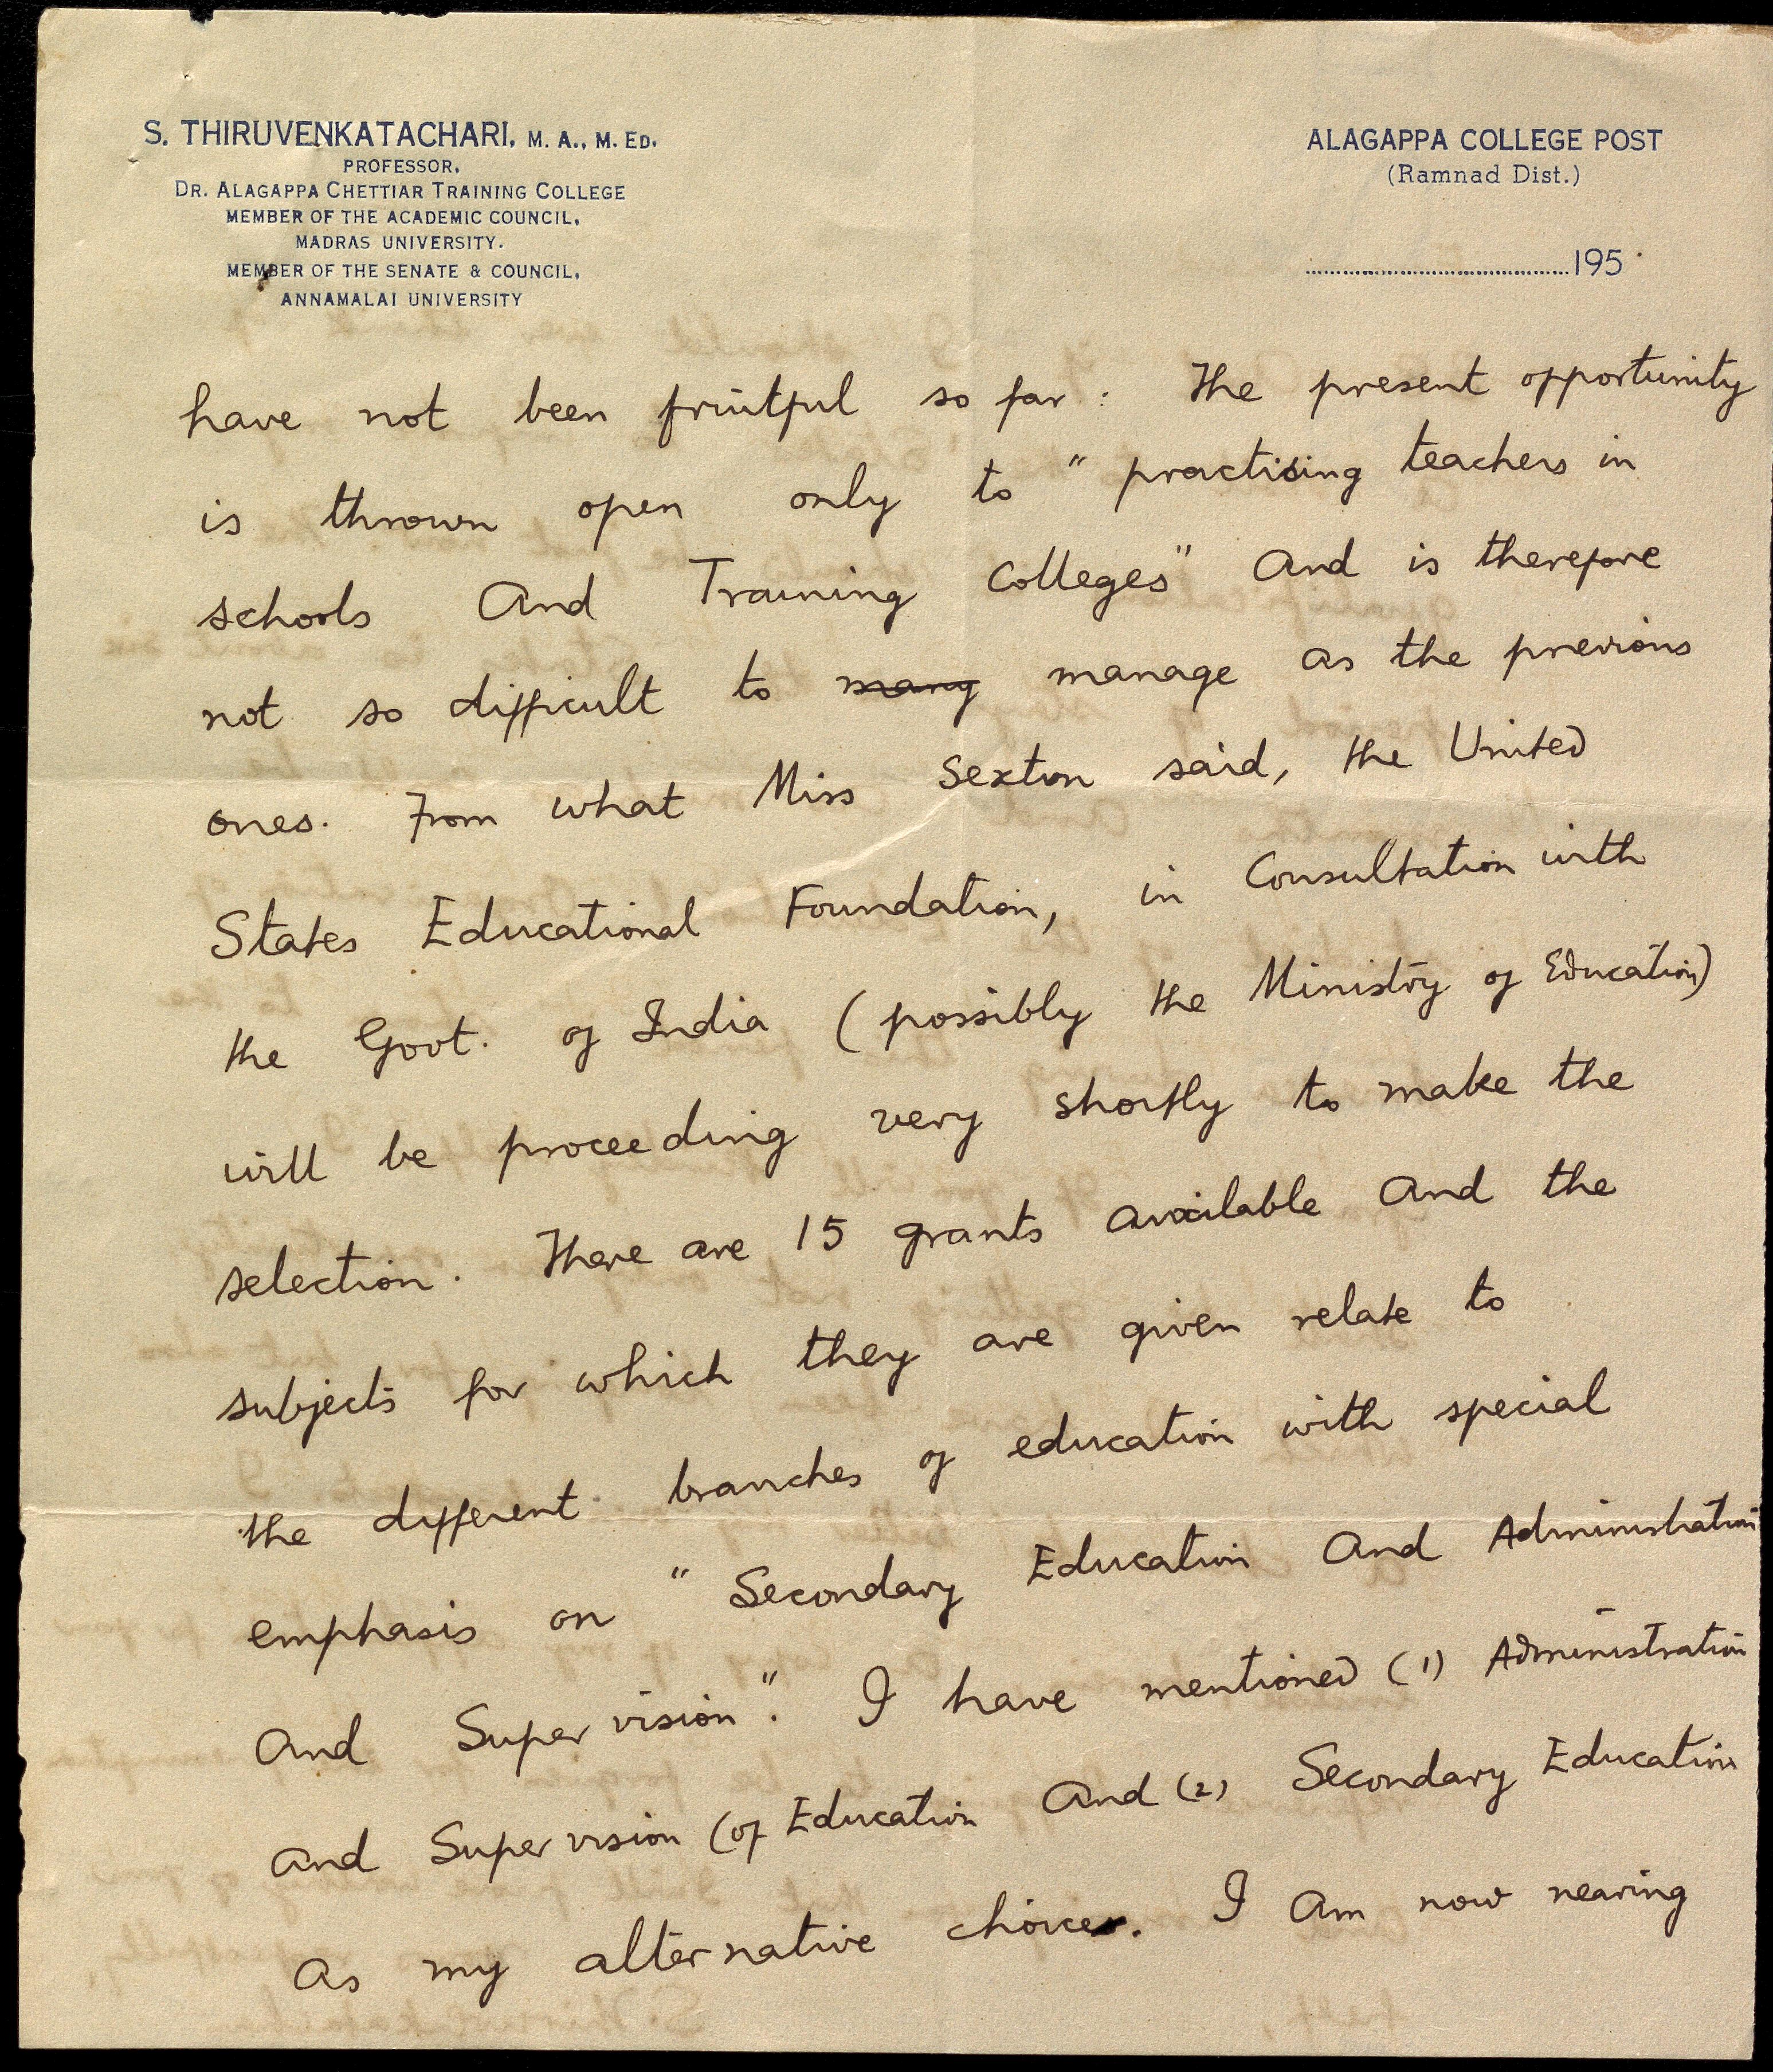 S. THIRUVENKATACHARI, M. A., M. ED.
PROFESSOR,
DR. ALAGAPPA CHETTIAR TRAINING COLLEGE
MEMBER OF THE ACADEMIC COUNCIL,
MADRAS UNIVERSITY.
MEMBER OF THE SENATE & COUNCIL,
ANNAMALAI UNIVERSITY
ALAGAPPA COLLEGE POST
(Ramnad Dist.)
............................................195
have not been fruitful so far : The present opportunity
is thrown open only to " practising teachers in
schools And Training Colleges" And is therefore
not so difficult to many manage as the previous
ones. From what Miss Sexton said, the United
States Educational Foundation, in Consultation with
the Govt. of India (possibly the Ministry of Education)
will be proceeding very shortly to make the
selection. There are 15 grants available And the
subjects for which they are given relate to
the different branches of education with special
emphasis on " Secondary Education And Administration
And Supervision". I have mentioned (1) Administration
And Supervision (of Education And (2) Secondary Education
As my alternative choices. I Am now nearing